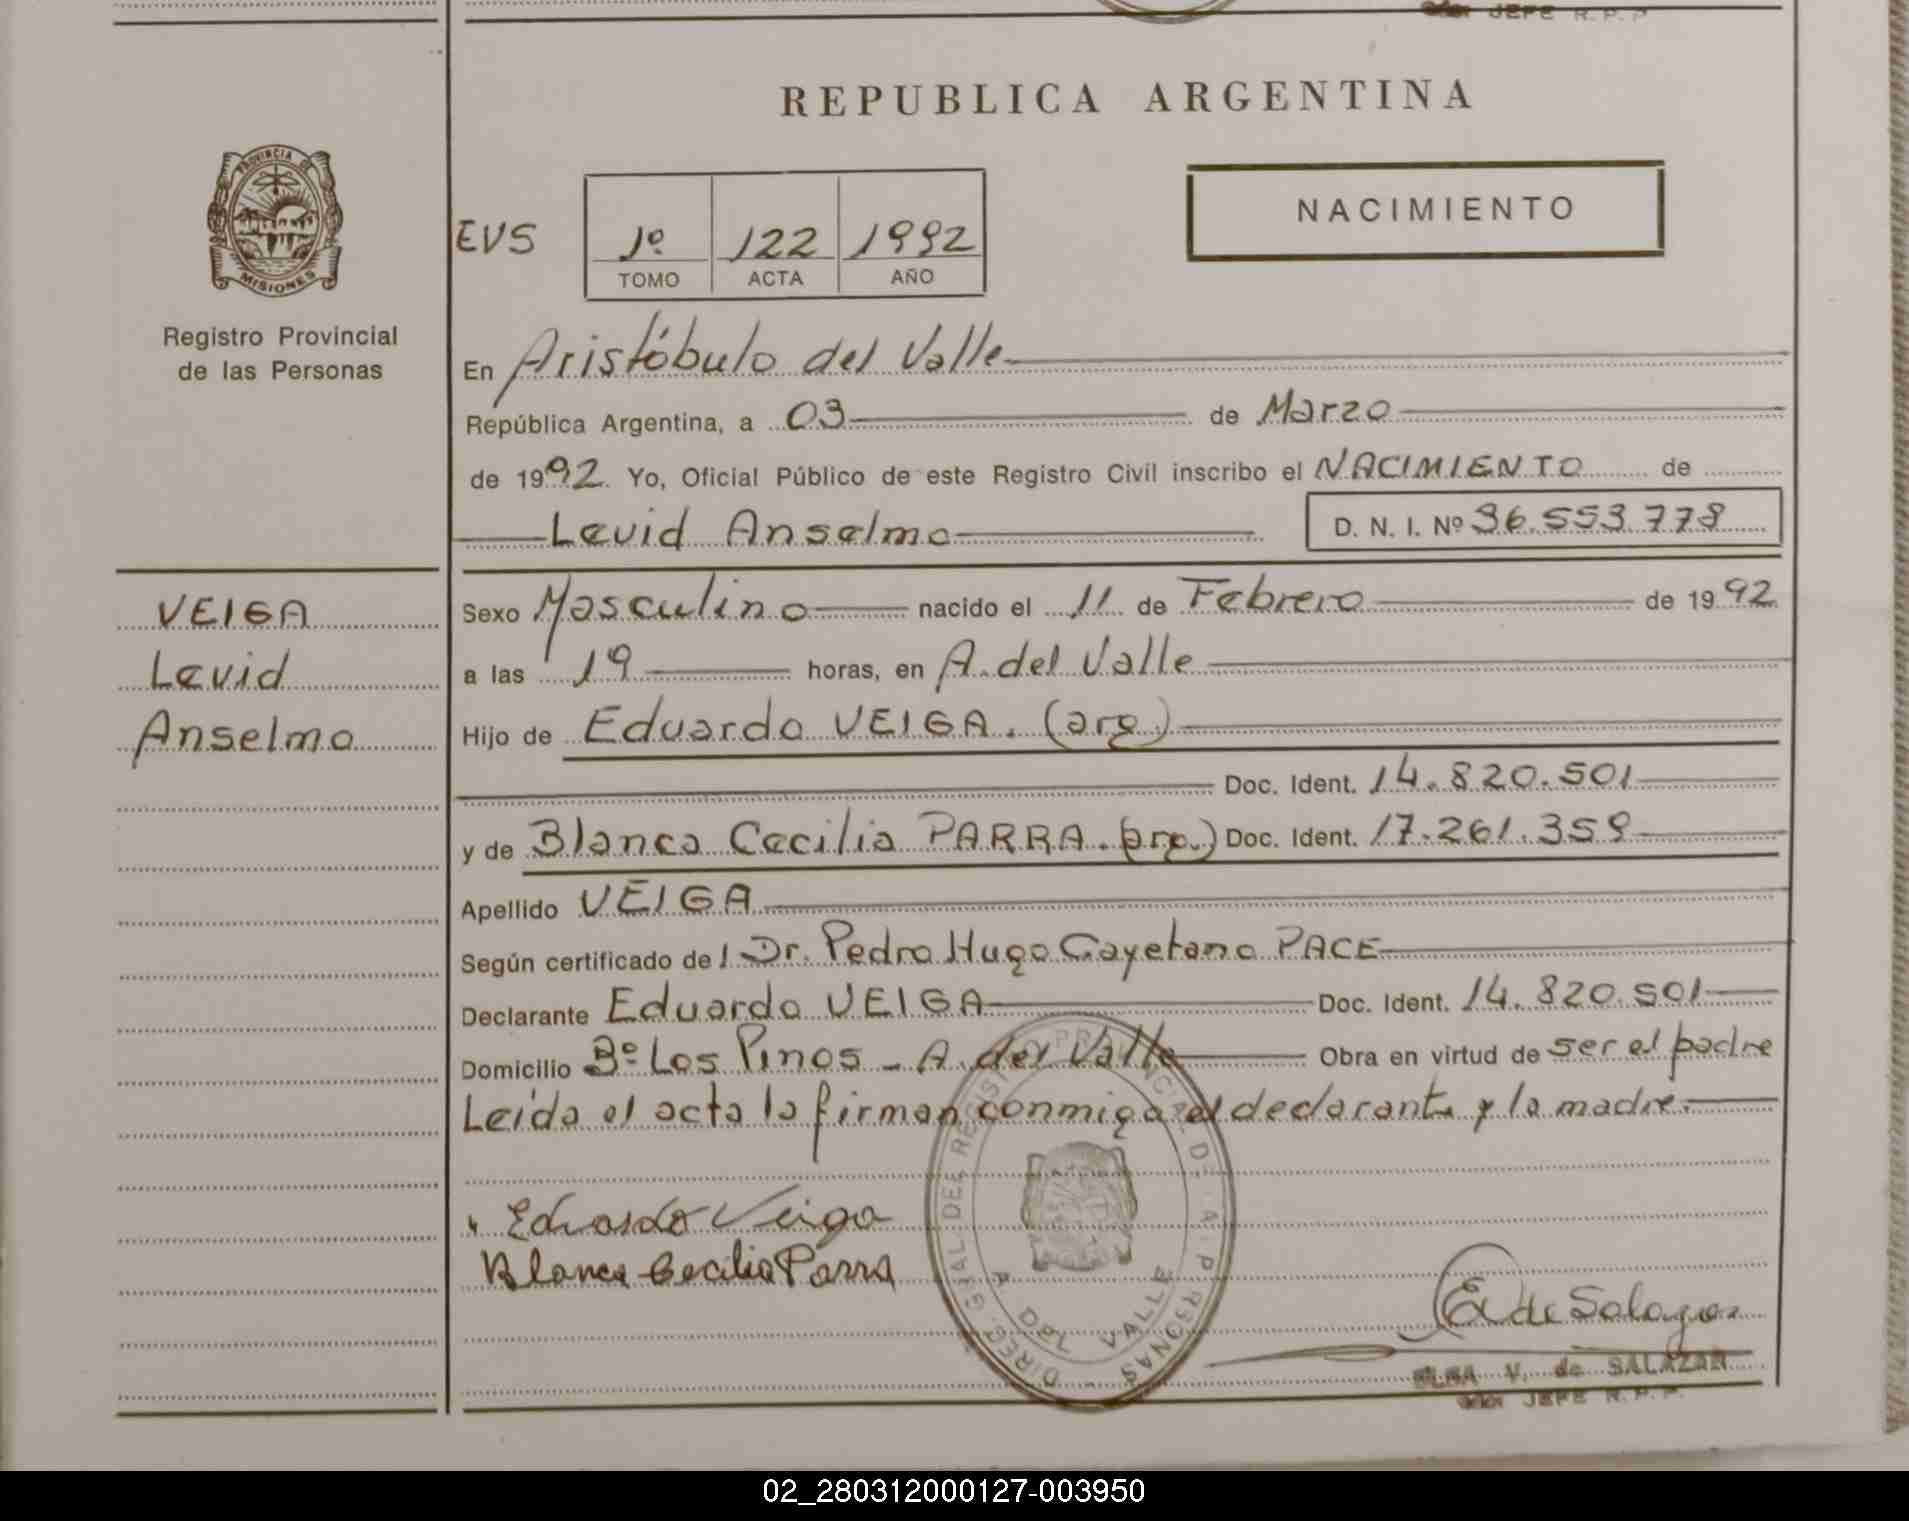 JEFE R.P.P
REPUBLICA ARGENTINA
PROVINCIA DE
MISIONES
Registro Provincial
de las Personas
EVS
1º 122 1992
TOMO ACTA AÑO
NACIMIENTO
En Aristóbulo del Valle
República Argentina, a 03 de Marzo
de 1992. Yo, Oficial Público de este Registro Civil inscribo el NACIMIENTO de
Levid Anselmo D. N. I. Nº 36.553.778
VEIGA
Levid
Anselmo
Sexo Masculino nacido el 11 de Febrero de 1992
a las 19 horas, en A. del Valle
Hijo de Eduardo VEIGA. (arg.)
Doc. Ident. 14.820.501
y de Blanca Cecilia PARRA. (arg.) Doc. Ident. 17.261.359
Apellido VEIGA
Según certificado de l Dr. Pedro Hugo Cayetano PACE
Declarante Eduardo VEIGA Doc. Ident. 14.820.501
Domicilio Bº Los Pinos - A. del Valle Obra en virtud de ser el padre
Leída el acta la firman conmigo el declarante y la madre.
Eduardo Veiga
Blanca Cecilia Parra
DIREC. GRAL. DEL REGISTRO PROVINCIAL DE LAS PERSONAS
A. DEL VALLE
E V de Salazar
ELBA V. de SALAZAR
JEFE R.P.P.
02_280312000127-003950